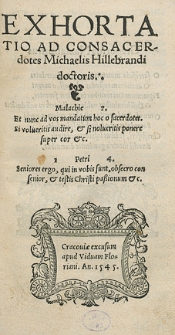 EXHORTA
TIO AD CONSACER-
dotes Michaelis Hillebrandi
doctoris.
Malachie 2.
Et nunc ad vos mandatum hoc o sacerdotes.
Si volueritis audire, & si nolueritis ponere
super cor &c.
1 Petri 4.
Seniores ergo, qui in vobis sunt, obsecro con
senior, & testis Christi passionum &c.
Cracoviæ excusum
apud Viduam Flo
riani. An. 1545.